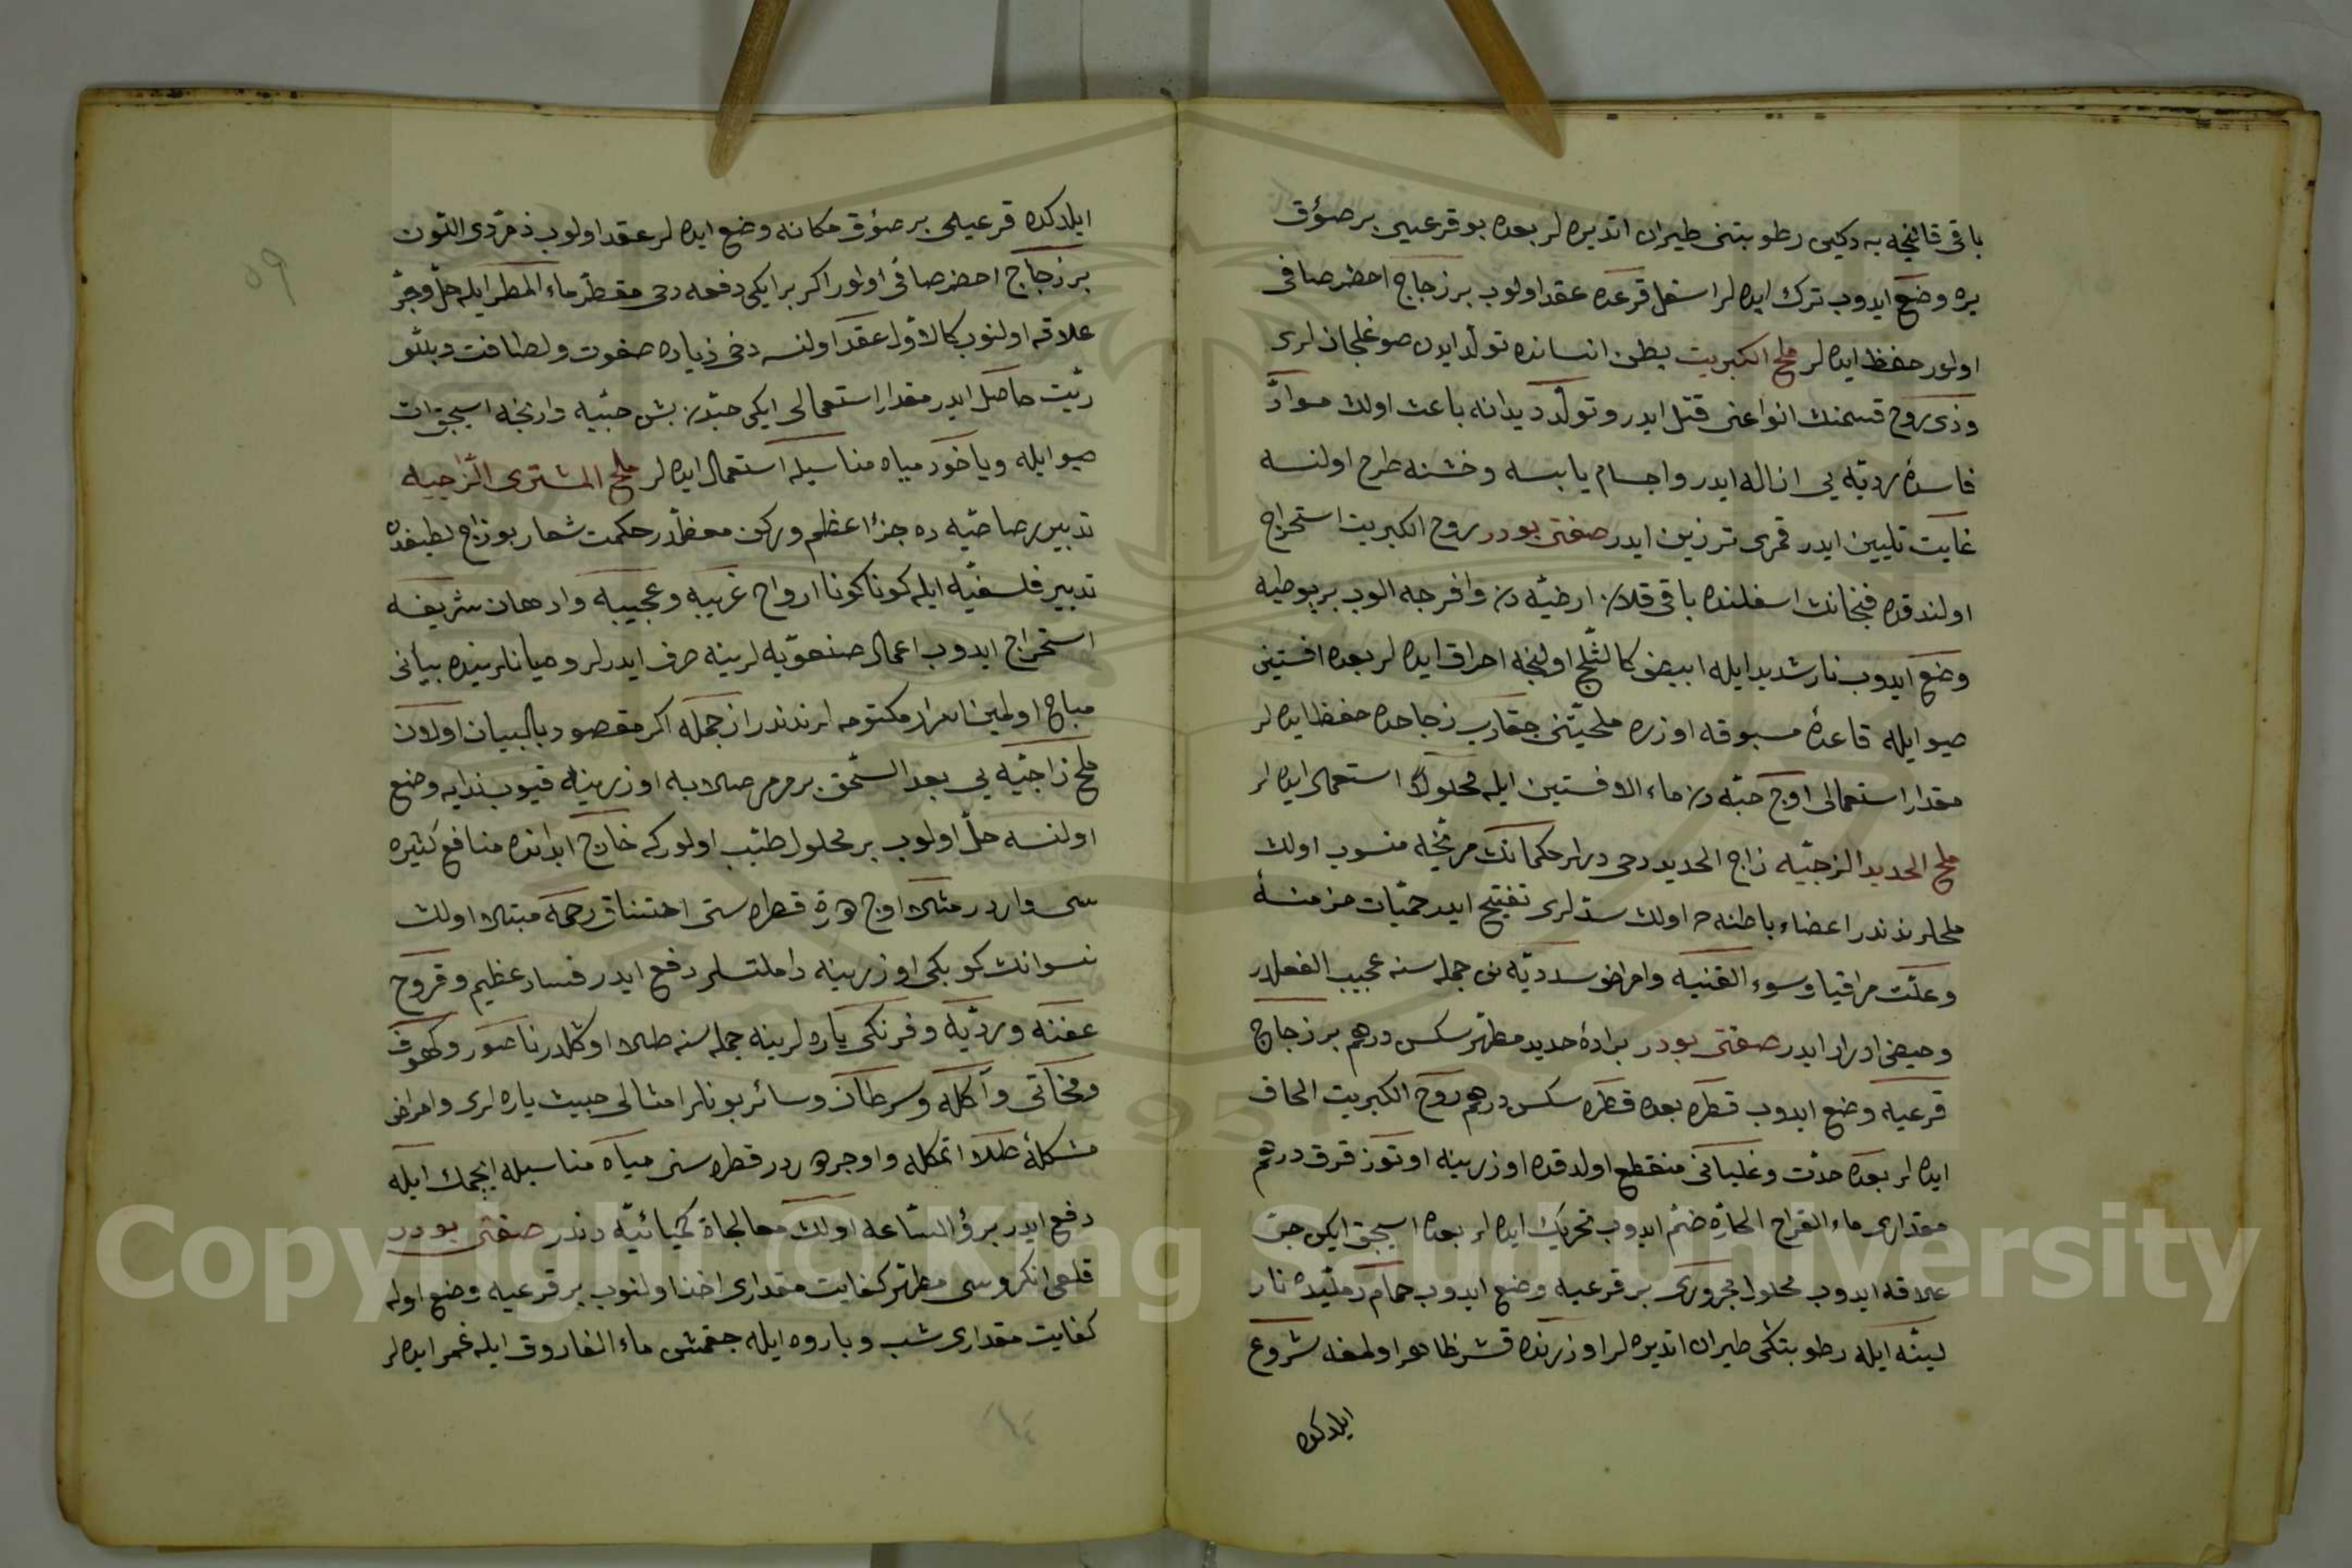 باقی قالنجه یه دکین رطوبتنی طیران اتدیره لر بعده بو قرعیی بر صؤق
یره وضع ایدوب ترك ایده لر اسفل قرعده عقد اولوب بر زجاج احضر صافی
اولور حفظ ایده لر ملح الکبریت بطن انسانده تولد ایدن صوغلجانلری
وذی روح قسمنك انواعنی قتل ایدر و تولد دیدانه باعث اولان موادّ
فاسدۀ ردیّه یی ازاله ایدر و اجسام یابسه و خشنه طرح اولنسه
غایت تلیین ایدر قمری ترزین ایدر صفتی بودر روح الکبریت استخراج
اولندقده فنجانك اسفلنده باقی قلان ارضیّه دن وافرجه الوب بر بوطیه
وضع ایدوب نار شدید ایله ابیض کالثّلج اولنجه احراق ایده لر بعده افسنتین
صیو ایله قاعدۀ مسبوقه اوزره ملحیّتنی چقارب زجاجده حفظ ایده لر
مقدار استعمالی اوچ حبّه دن ماء الافسنتین ایله محلولاً استعمال ایده لر
ملح الحدید الزاجیّه زاج الحدید دخی دیرلر حکمانك مریخه منسوب اولان
ملحلرندندر اعضاء باطنه ده اولان سدّلری تفتیح ایدر حمّیات مزمنۀ
و علّت مراقیا و سوء القنیه و امراض سددیّه نی جمله سنه عجیب الفعلدر
و حیضی ادرار ایدر صفتی بودر برادۀ حدید مطهّر سکس درهم بر زجاج
قرعیه وضع ایدوب قطره بعده قطره سکس درهم روح الکبریت الحاق
ایده لر بعده حدّت و غلیانی منقطع اولدقده اوزرینه اوتوز قرق درهم
مقداری ماء القراح الحارّه ضمّ ایدوب تحریك ایده لر بعده اسیجق ایکن جرّ
علاقه ایدوب محلول مجروری بر قرعیه وضع ایدوب حمام رملیّده نار
لیّنه ایله رطوبتکی طیران اتدیره لر اوزرنده قشر ظاهر اولمغه شروع
ایلدکده
ایلدکده قرعیلی بر صؤق مکانه وضع ایده لر عقد اولوب زمرّدی اللّون
بر زجاج احضر صافی اولور اکر بر ایکی دفعه دخی مقطّر ماء المطر ایله حلّ و جرّ
علاقه اولنوب کالاوّل عقد اولنسه دخی زیاده صفوت و لطافت و بلّو
ریّت حاصل ایدر مقدار استعمالی ایکی حبّدن بش حبّیه وارنجه اسیجق ات
صیو ایله ویاخود میاه مناسبله استعمال ایده لر ملح المشتری الزّاجیه
تدبیر رصاصیّه ده جزء اعظم و رکن معظّمدر حکمت شعار بو زاج لطیفدن
تدبیر فلسفیّه ایله کوناکونا ارواح غریبه و عجیبه و ادهان شریفه
استخراج ایدوب اعمال صنعویّه لرینه صرف ایدرلر و میانلرینده بیانی
مباح اولمین اسرار مکتومه لرندندر از جمله اکر مقصود بالبیان اولدن
ملح زاجیّه یی بعد السّحق بر مرمر صلابه اوزرینه قیوب ندایه وضع
اولنسه حلّ اولوب بر محلول طیّب اولور که خارج ابدانده منافع کثیره
سی واردر مثلا اوچ درت قطره سنی اختناق رحمه مبتلا اولان
نسوانك کوبکی اوزرینه داملتسلر دفع ایدر فساد عظیم و قروح
عفنه و ردیّه و فرنکی یاره لرینه جمله سنه طلا اوکلدر ناصور و کهوف
و آکله و سرطان و سائر بونلر امثالی خبیث یاره لری و امراض
مشکله طلا اتمکله و اوچر دردر قطره سنی میاه مناسبله ایچمك ایله
دفع ایدر برؤ السّاعه اولان معالجاة کیمیائیّه دندر صفتی بودر
قلعی انکروسی مطهّر کفایت مقداری اخذ اولنوب بر قرعیه وضع اوله
کفایت مقداری شب و باروه ایله چقمش ماء الفاروق ایله غمر ایده لر